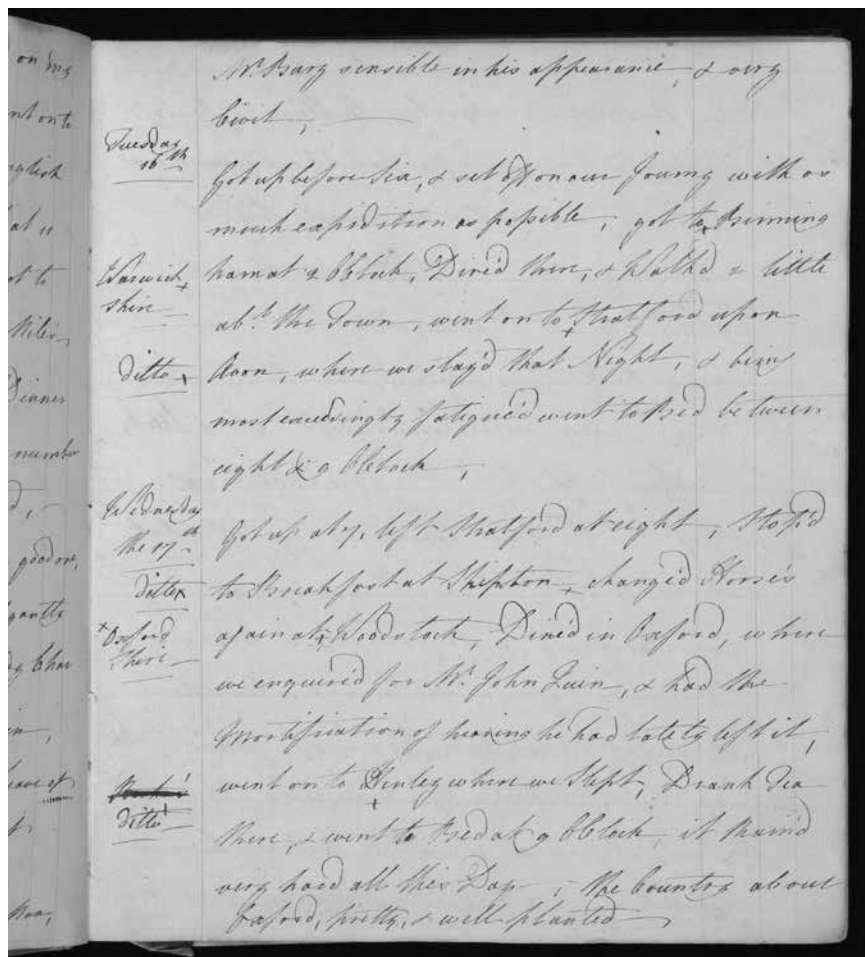 on my
Mr. Barg sensible in his appearance, & very
Civil,
Tuesday
16th
Got up before Six, & set off on our Journy with as
much expidition as possible, got to Birming
Warwick
shire
ham at 2 OClock, Dined there, & Walk'd a little
abt. the Town, went on to Stratford upon
ditto
Avon, where we stay'd that Night, & being
most exceedingly fatigue'd went to Bed between
eight & 9 OClock,
Wednesday
the 17th
Got up at 7, left Stratford at eight, Stop'd
ditto
to Breakfast at Shipton, change'd Horse's
Oxford
Shire
again at Woodstock, Dined in Oxford, where
we enquire'd for Mr. John Quin, & had the
Mortification of hearing he had lately left it,
went on to Henley where we Slept, Drank Tea
ditto
there, & went to Bed at 9 OClock, it Rain'd
very hard all this Day, the Country about
Oxford, pretty, & well planted